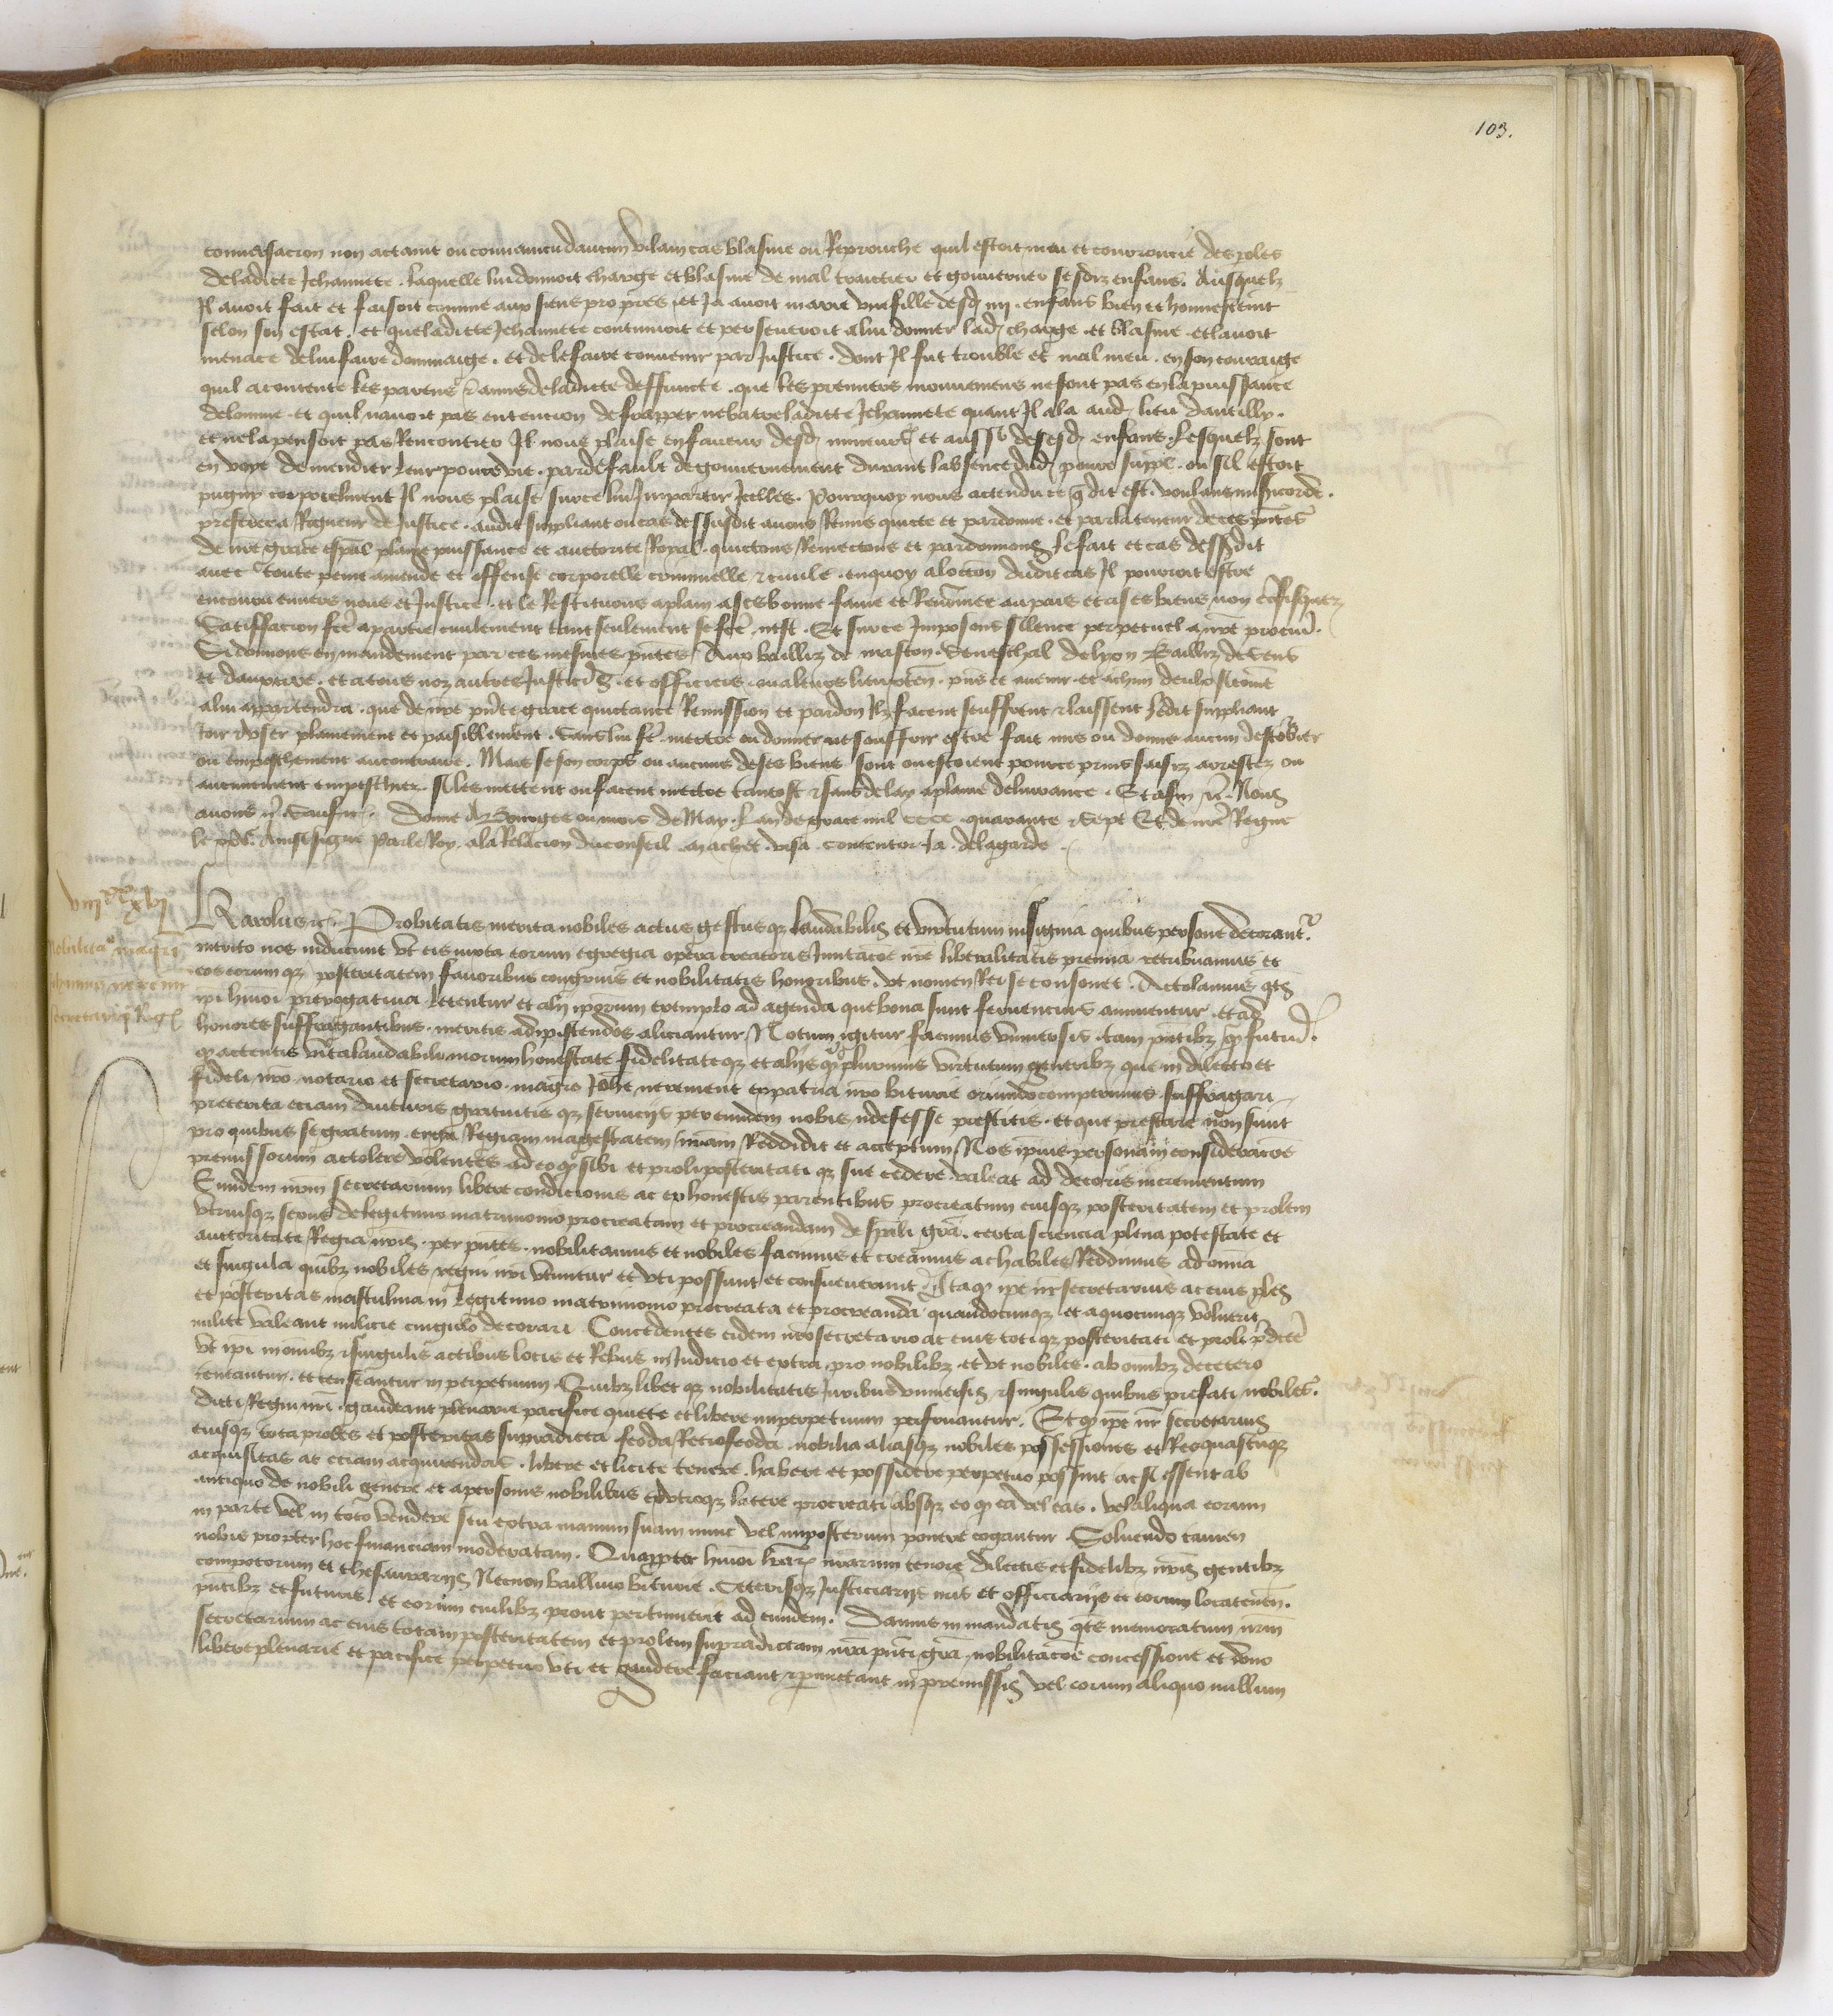 103.
conversacion non actaint ou convaincu daucun vilain cas blasme ou Reprouche quil estoit meu et courroucie des poles
deladicte Jehannete . laquelle lui donnoit charge et blasme de mal traictier et gouverner sesdiz enfans . Ausquelz
Il avoit fait et faisoit comme aux siens propres . et Ja avoit marie une fille desd iiii . enfans bien et honnestemt
selon son estat . et que ladicte Jehannete continuoit et perseveroit a lui donner lad charge et blasme . et lavoit
menace de lui faire dommaige . et de le faire convenir par Justice . dont Il fut trouble et mal meu . en son couraige
quil a contente les parens & amis de ladicte deffuncte . que les premiers mouvemens ne sont pas en la puissance
de lomme . et quil navoit pas entencion de frapper ne batre ladicte Jehannete quant Il ala aud lieu dantilly .
et ne la pensoit pas Rencontrer Il nous plaise en faveur desd mineurs et aussi de sesd enfans . lesquelz sont
en voye de mendier leur povre vie . par default de gouvernement durant labsence dud povre suppl . ou sil estoit
pugny corporelment Il nous plaise sur ce lui Impartir Icelles . Pourquoy nous actendu ce q dit est . voulans misericorde .
preferer a Rigueur de Justice . audit suppliant ou cas dessusdit avons Remis quicte et pardonne . et par la teneur de ces pntes
de nre grace espal plaine puissance et auctorite Royal . quictons Remectons et pardonnons le fait et cas dessusdit
avec toute peine amende et offense corporelle criminelle & civile . en quoy a loccon dudit cas Il pourroit estre
encouru envers nous et Justice . et le Restituons a plain a ses bonne fame et Renommee au pais et a ses biens non confisquez
Satiffacion fce a partie civilement tant seulement se fce nest . Et sur ce Imposons sillence perpetuel a nre procur .
Si donnons en mandement par ces mesmes pntes Aux bailliz de mascon . Seneschal de lyon Bailliz de Sens
et dauxerre . et a tous noz autres Justiciers et officiers . ou a leurs lieuxten . pns et avenir . et a chun deulx si come
a lui appartendra . que de nre pnte grace quictance Remission et pardon Ilz facent seuffrent & laissent ledit suppliant
Joir & user plainement et paisiblement . Sans lui fe mectre ou donner ne souffrir estre fait mis ou donne aucun destorbier
ou empeschement au contraire . Mais se son corps ou aucuns de ses biens sont ou estoient pour ce prins saisiz arrestez ou
aucunement empeschiez . Si les mettent ou facent mectre tantost & sans delay a plaine delivrance . Et afin &c . Nous
avons &c . Sauf &c . Donne A Bourges ou mois de May . lan de grace mil cccc quarante & sept Et de nre Regne
le xxve . Ainsi signe Par le Roy . a la Relacion du conseil . machet . visa . contentor . Ja . de lagarde .
viii xx xvi
Nobilitac magri
Johannis nerement
secretarii Regis
Karolus &c . Probitatis merita nobiles actus gestusq laudabiles et virtutum insignia quibus persone decorantr .
merito nos inducunt ut eis iuxta eorum egregia opera creatoris Imitacoe nre liberalitatis premia retribuamus et
eos eorumq posteritatem favoribus congruis et nobilitatis honoribus . ut nomen Rei se consonet . Actolamus qts
ipi hmoi prerogativa letentur et alij ipsorum exemplo ad agenda que bona sunt ferventius animentur . et ad
honores suffragantibus . meritis adipiscendos aliciantur / Notum igitur facimus universis . tam pntibz q futuris .
q actentis vita laudabili morum honestate fidelitateq et alijs q plurimis virtutum generibz que in dilecto et
fideli nro notario et secretario . magro Johe nerement ex patria nra biturie oriundo comperimus suffragari
preterita eciam diuturis gratuitis q serviciis per eundem nobis indefesse prestitis . et que prestare non sunt
pro quibus se gratum . erga Regiam magestatem nram Reddidit et acceptum / Nos ipius personam consideracoe
premissorum actolere volentes . ad eo q sibi et proli posteritati q sue cedere valeat ad decoris incrementum
Eundem nrm secretarium libere condicionis ac ex honestis parentibus procreatum eiusq posteritatem et prolem
utriusq sexus de legitimo matrimonio procreatam et procreandam de spali gra . certa sciencia plena potestate et
auctoritate Regia nris . per pntes . nobilitamus et nobiles facimus et creamus ac habiles Reddimus ad omia
et singula quibz nobiles regni nri utuntur et uti possunt et consueverunt / Itaq ipe nr secretarius ac eius ples
et posteritas masculina in legitimo matrimonio procreata et procreanda quandocumq et a quocumq voluerit
milite valeant milicie cingulo decorari Concedentes eidem nro secretario ac eius toti q posteritati et proli pdicte
ut ipi in omibz & singulis actibus locis et Rebus in Judicio et extra . pro nobilibz . et ut nobiles . ab omibz decetero
teneantur . et censeantur in perpetuum . Quibz libet q nobilitatis Juribus universis & singulis quibus prefati nobiles
dicti Regni nri . gaudeant plenarie pacifice quiete et libere in perpetuum perfruantur . Et q ipe nr secretarius
eiusq tota proles et posteritas supradicta feoda Retrofeoda nobilia aliasq nobiles possessiones et Res quascuq
acquisitas ac eciam acquirendas . libere et licite tenere . habere et possidere perpetuo possint ac si essent ab
antiquo de nobili genere et a personis nobilibus ex utroq latere procreati absq eo q ea vel eas . vel aliqua eorum
in parte vel in toto vendere seu extra manum suam nunc vel in posterum ponere cogantur Solvendo tamen
nobis propter hoc financiam moderatam . Quapropter hmoi lrar nrarum tenore dilectis et fidelibz nris gentibz
compotorum et thesaurarijs Necnon baillivo biturie . Ceterisq Justiciarijs nris et officiarijs et eorum locatenen .
pntibz et futuris . et eorum cuilibz prout pertinuerit ad eundem . Damus in mandatis qts memoratum nrm
secretarium ac eius totam posteritatem et prolem supradictam nra pnti gra nobilitacoe concessione et dono
libere plenarie et pacifice perpetuo uti et gaudere faciant & pmictant in premissis vel eorum aliquo nullum